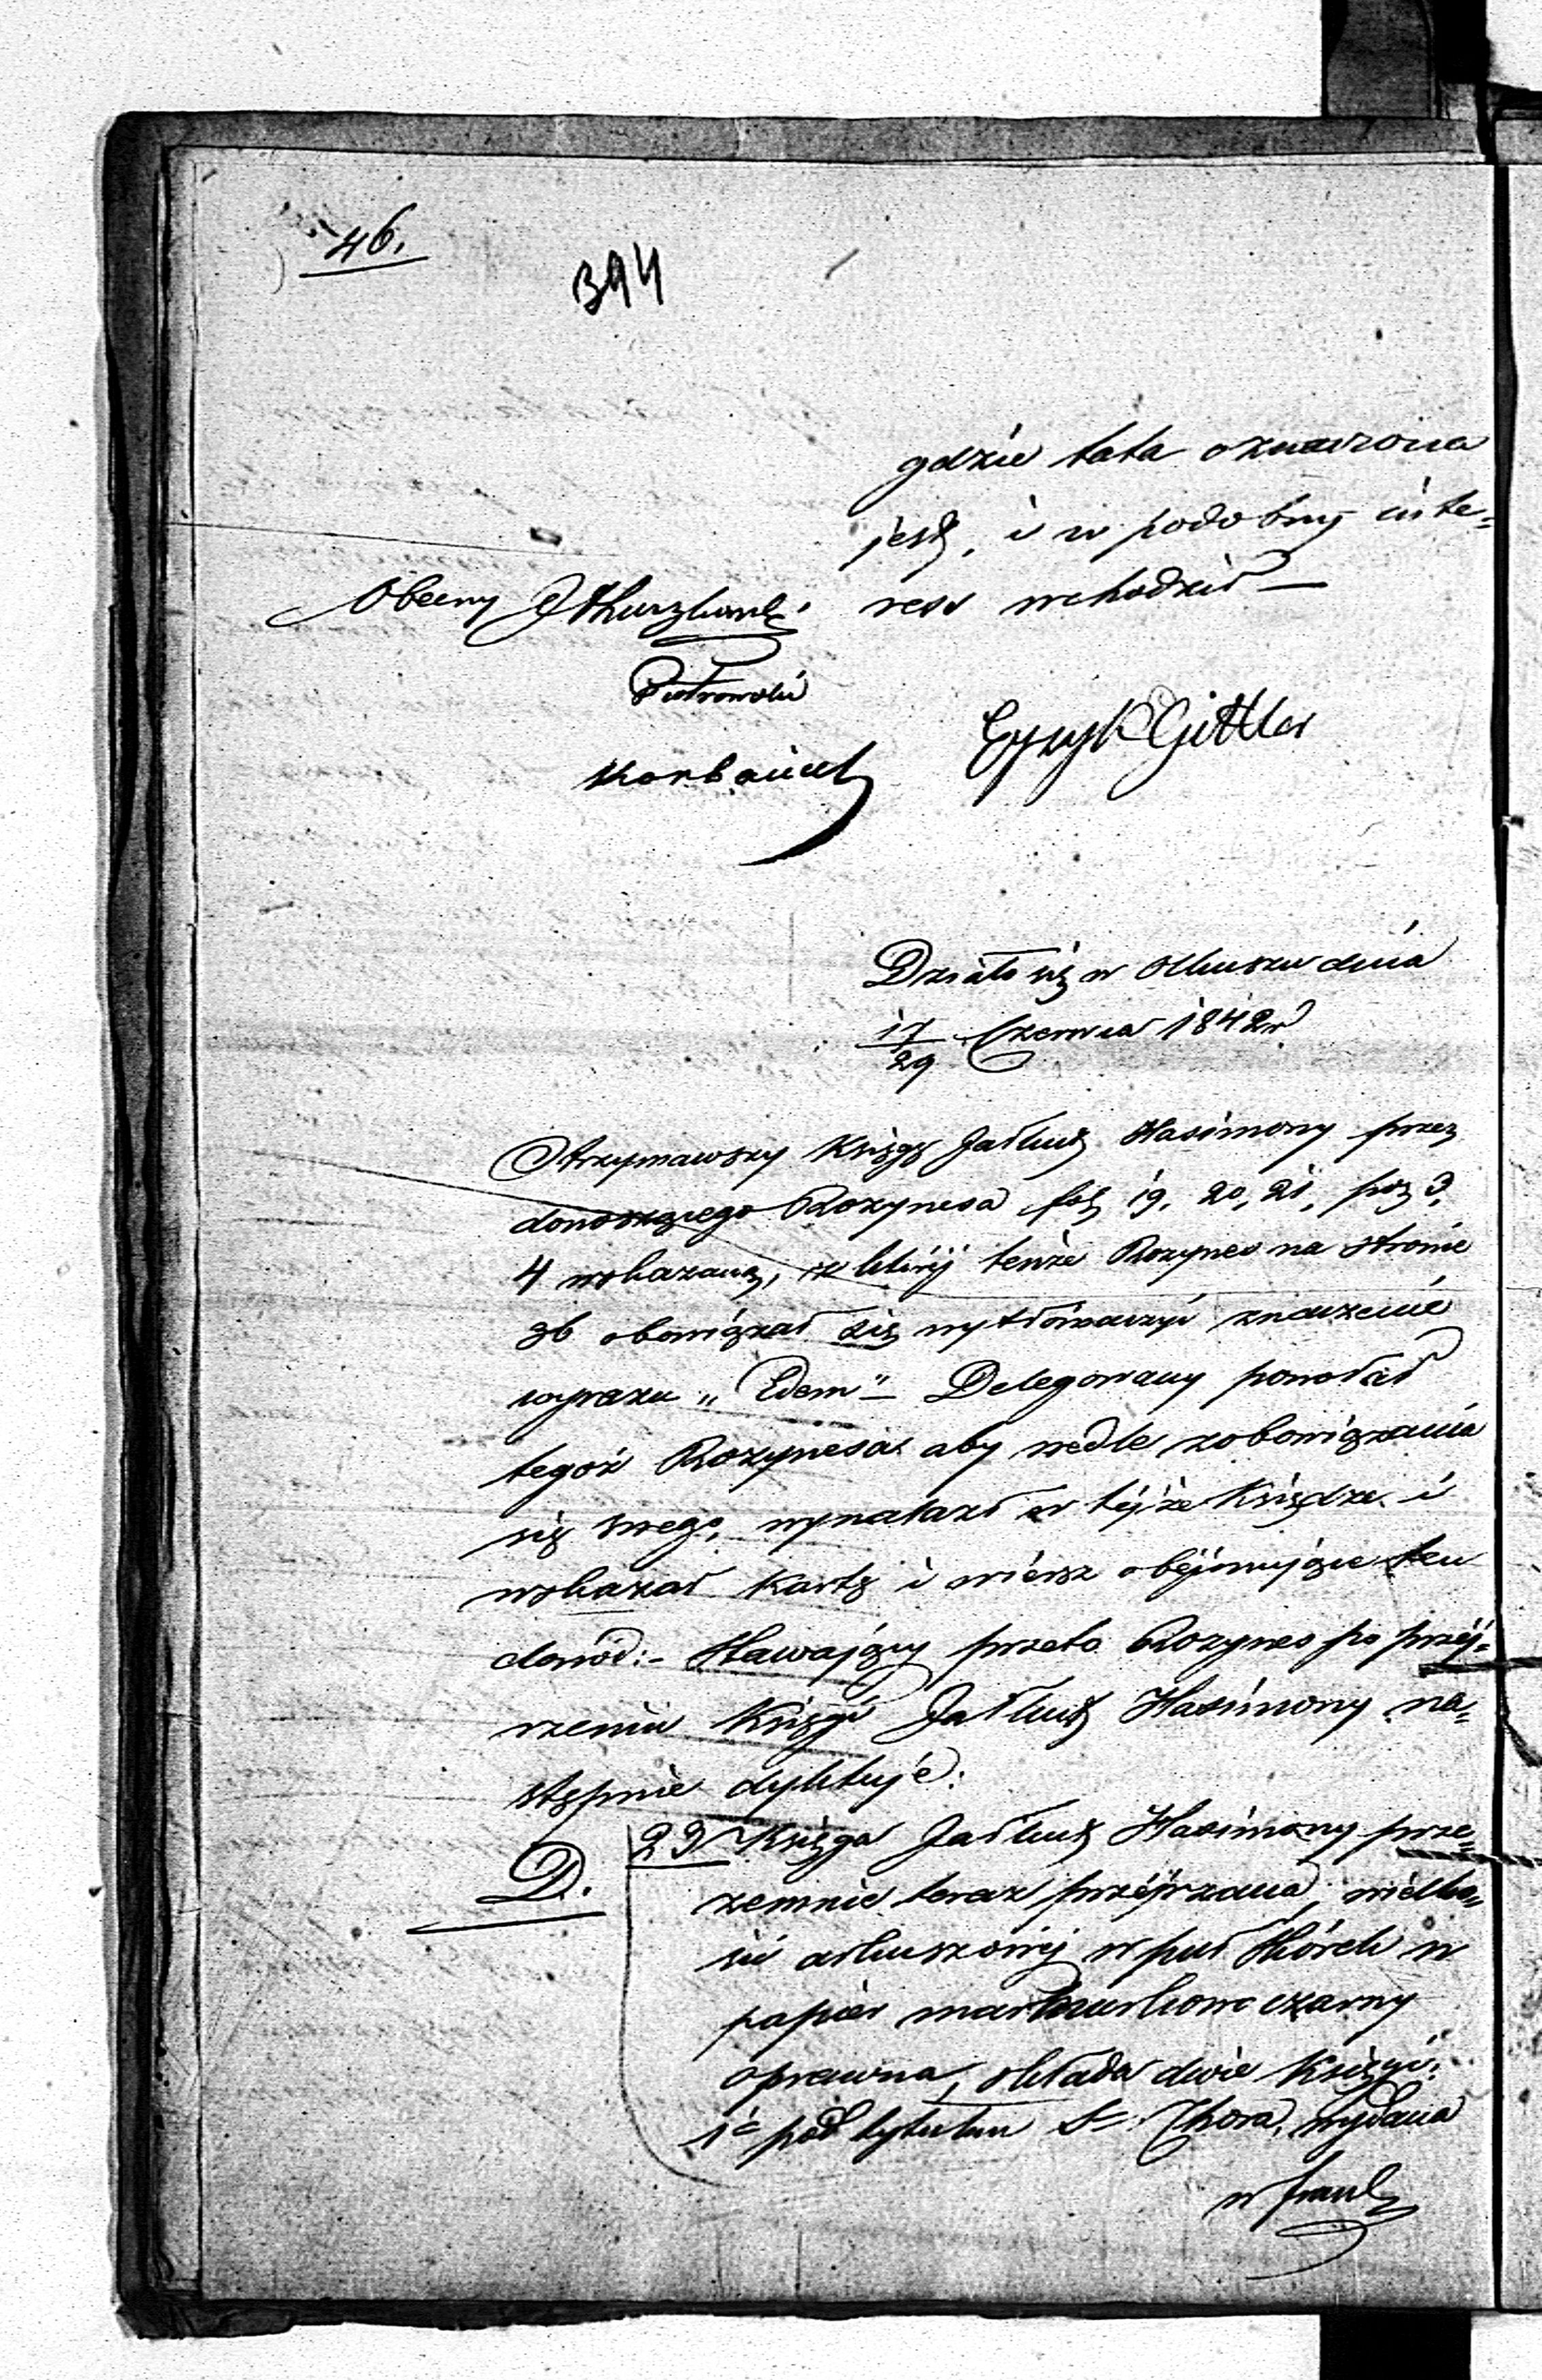 46.
394
gdzie tata oznaczona
jest, i w podobny inte=
ress wchodził —
Obecny
Piotrowski
Gittler
Działo się w Olkuszu dnia
17/29 Czerwca 1842 r
Otrzymawszy Księgę Jałkut Hasimony przez
donoszącego Rozynesa fol 19, 20, 21, poz 3,
4 wskazaną, w którij tenże Rozynes na stronie
36 obowiązał się wytłómaczyć znaczenie
wyrazu „Edem" — Delegowany powołał
tegoż Rozynesa aby wedle zobowiązania
się swego, wynalazł w téjże Księdze i
wskazał kartę i wiersz obéjmujące ten
dowód: – Stawający przeto Rozynes po przéj=
rzeniu Księgi Jałkut Hasimony na=
stępnie dyktuje:
D.
23 Księga Jałkut Hasimony prze=
zemnie teraz przéjrzana, wielko=
ści arkuszowéj w puł skórek w
papier marmurkowo czarny
oprawna, składa dwie Księgi:
1ą pod tytułem S– Thora, wydana
w frank